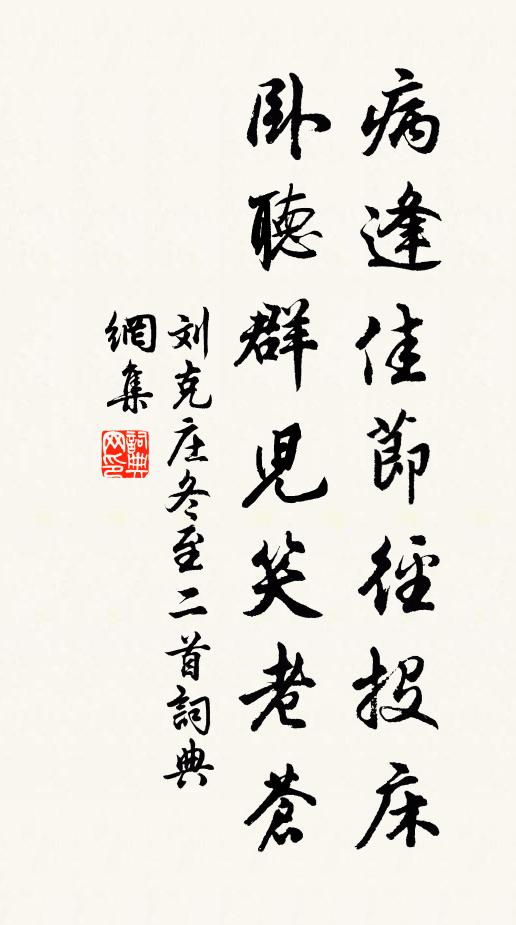 病逢佳節徑投床
卧聽群児笑老蒼
刘克庄冬至二首詞典
網集
詞典网印